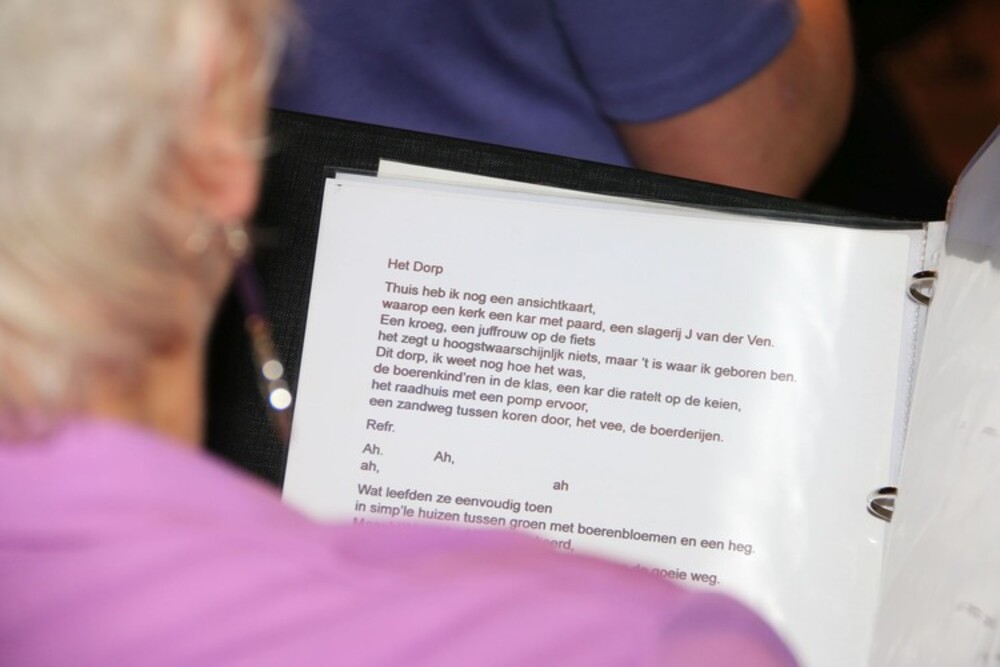 Het Dorp
Thuis heb ik nog een ansichtkaart,
waarop een kerk een kar met paard, een slagerij J van der Ven.
Een kroeg, een juffrouw op de fiets
het zegt u hoogstwaarschijnlijk niets, maar 't is waar ik geboren ben.
Dit dorp, ik weet nog hoe het was,
de boerenkind'ren in de klas, een kar die ratelt op de keien,
het raadhuis met een pomp ervoor,
een zandweg tussen koren door, het vee, de boerderijen.
Refr.
Ah. Ah,
ah, ah
Wat leefden ze eenvoudig toen
in simp'le huizen tussen groen met boerenbloemen en een heg.
goeie weg.